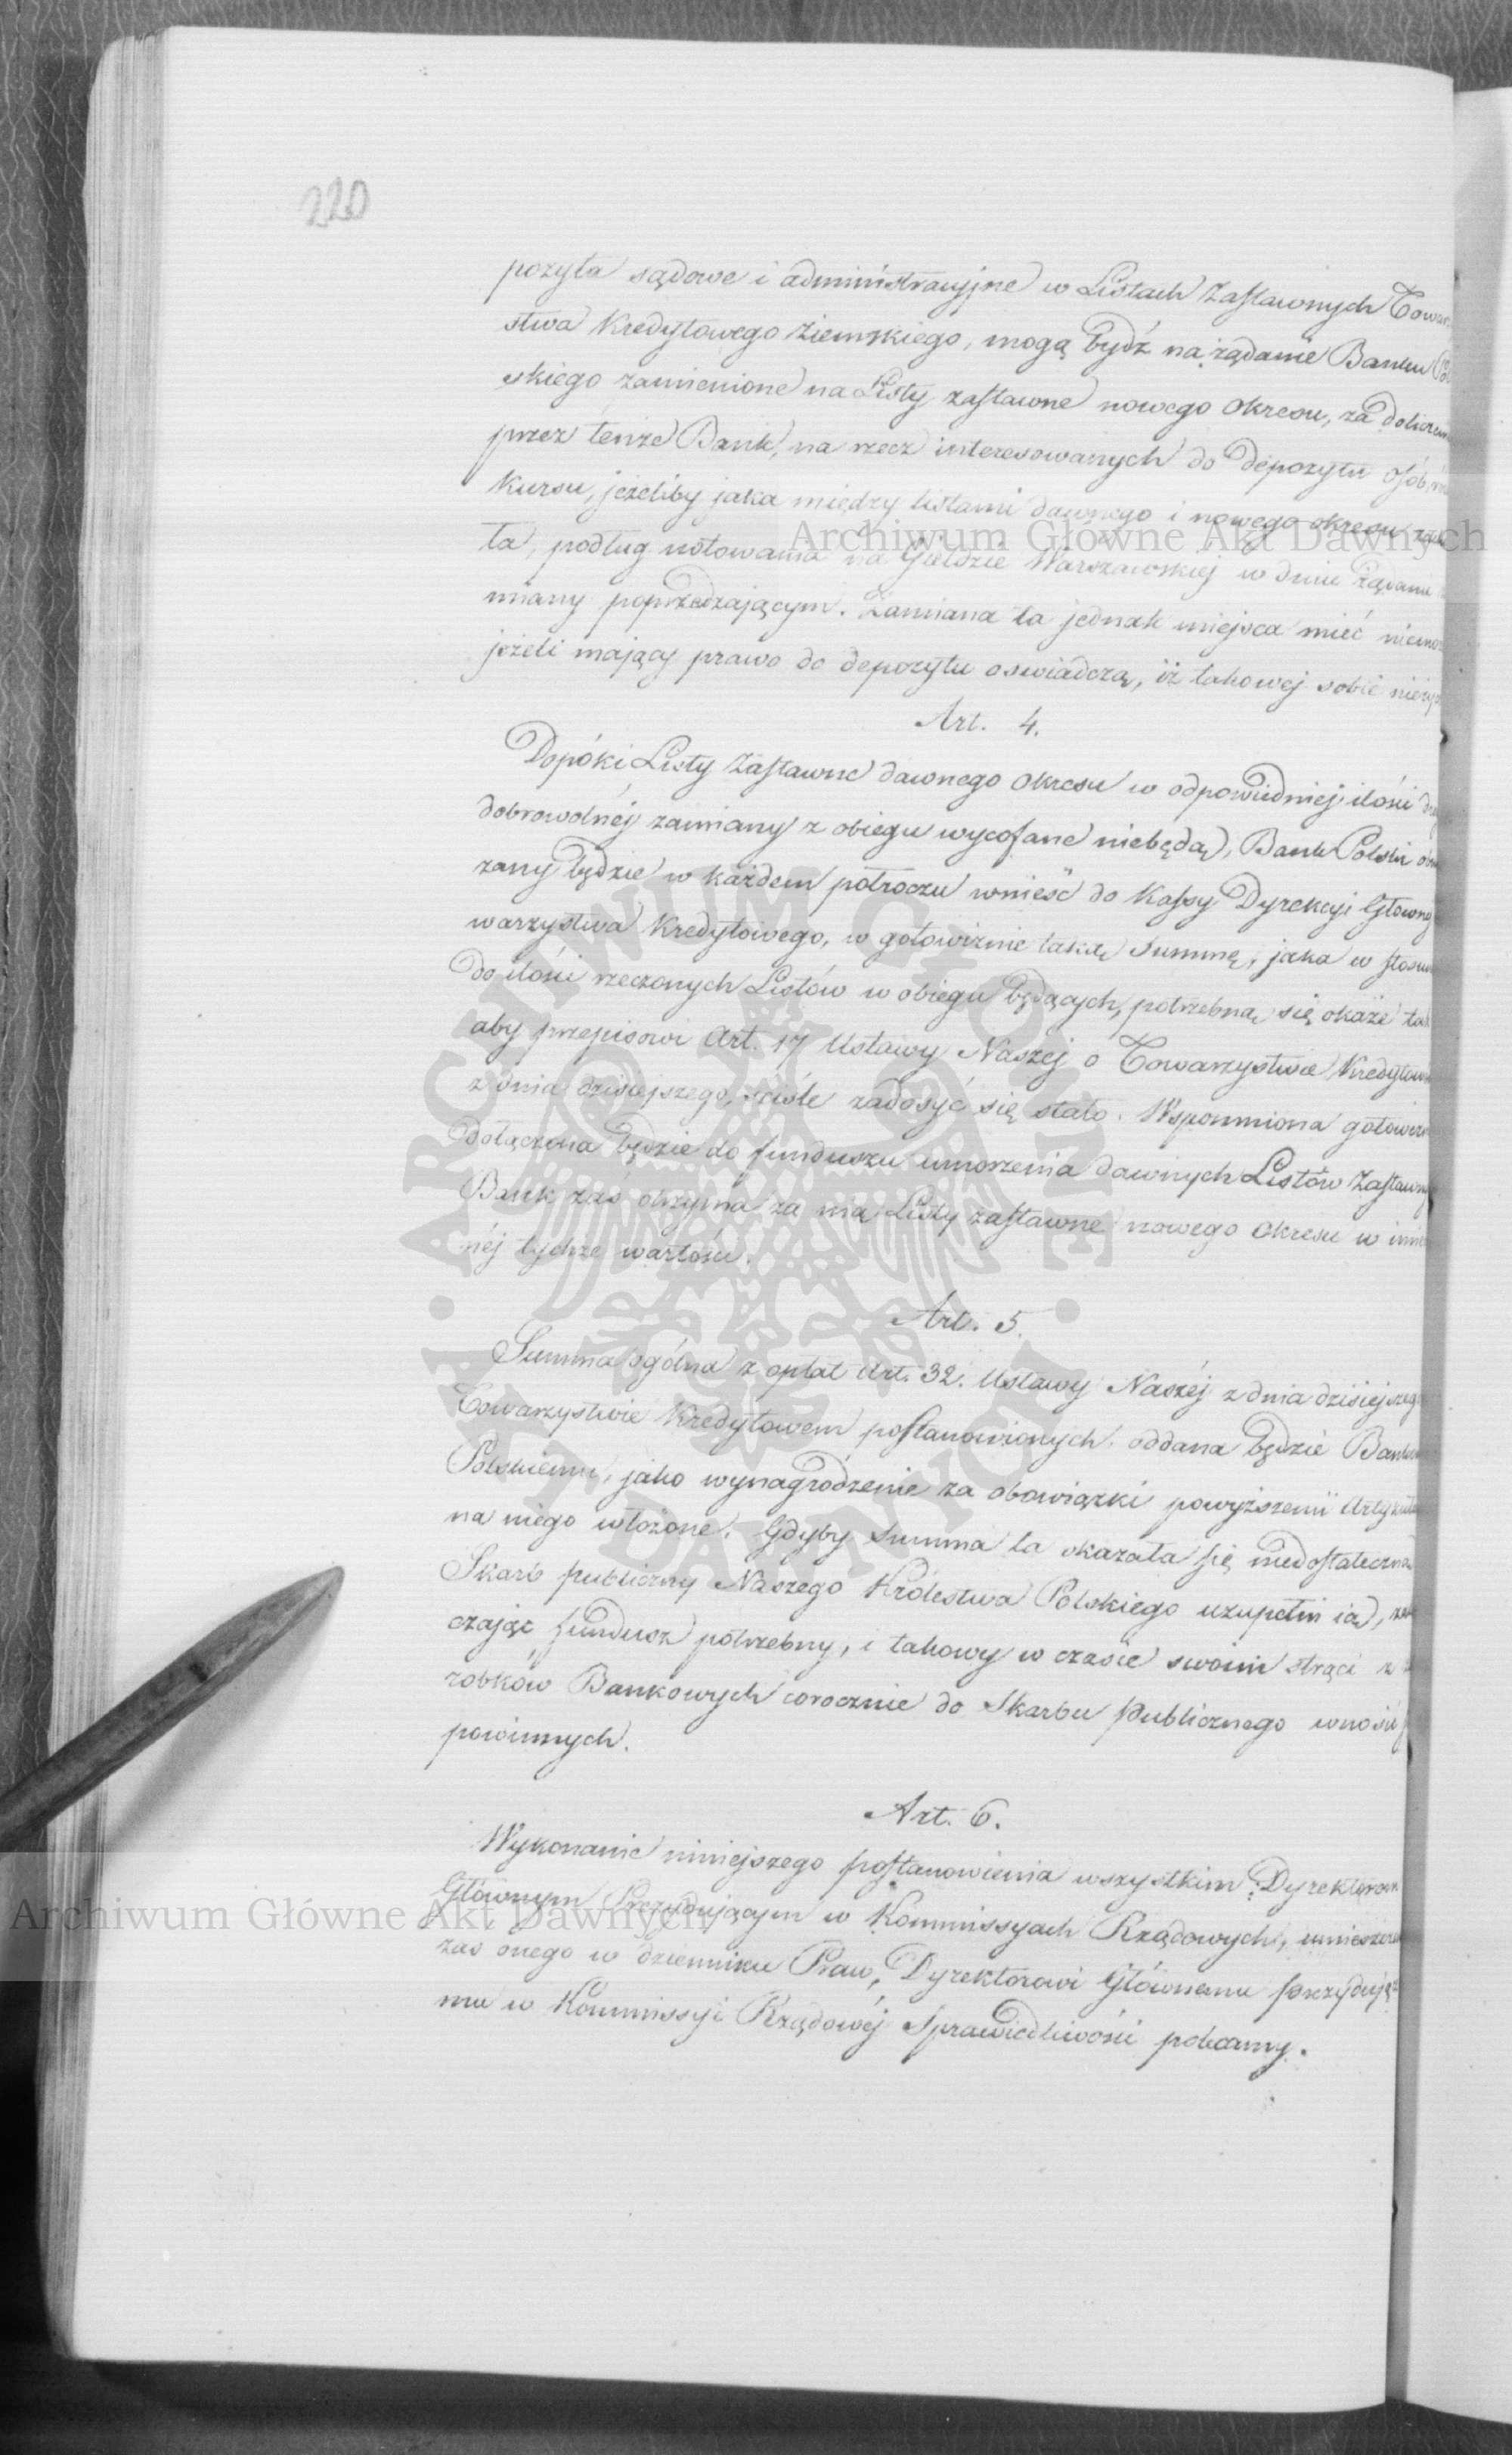 220
pozyta sądowe i administracyjne w Listach Zastawnych Towar
stwa Kredytowego Ziemskiego, mogą bydź na żądanie Banku Pol
skiego zamienione na Listy zastawne nowego Okresu, za dolicze
przez tenże Bank, na rzecz interesowanych do depozytu osób,
Kursu, jeżeliby jaka między listami dawnego i nowego okresu za
ta, podług notowania na Giełdzie Warszawskiej w dniu żądani
miany poprzedzającym. Zamiana ta jednak miejsca mieć niemo
jeżeli mający prawo do depozytu oswiadczą, iż takowej sobie nieży
Art. 4.
Dopóki Listy Zastawne dawnego Okresu w odpowiedniej ilości
dobrowolnéj zamiany z obiegu wycofane niebędą, Bank Polski obo
zany będzie w każdem półroczu wnieść do Kassy Dyrekcyi Głowney
warzystwa Kredytowego, w gotowiznie taką Summę, jaka w stosu
do ilości rzeczonych Listów w obiegu będących, potrzebną się okaże tak
aby przepisowi Art. 17 Ustawy Naszej o Towarzystwie Kredytow
z dnia dzisiejszego, ściśle zadosyć się stało. Wspomniona gotowizn
dołączona będzie do funduszu umorzenia dawnych Listów Zastawny
Bank zaś otrzyma za nią Listy zastawne nowego Okresu w imie
néj tychże wartości.
Art. 5.
Summa ogólna z opłat Art. 32. Ustawy Naszéj z dnia dzisiejszeg
Towarzystwie Kredytowem postanowionych, oddana będzie Banko
Polskiemu, jako wynagrodzenie za obowiązki powyższemi Artykuła
na niego włożone. Gdyby Summa ta okazała się niedostateczną
Skarb publiczny Naszego Królestwa Polskiego uzupełni ią,
czając fundusz potrzebny, i takowy w czasie swoim strąci z
robków Bankowych corocznie do Skarbu Publicznego wnosić
powinnych.
Art. 6.
Wykonanie niniejszego postanowienia wszystkim Dyrektorom
Głównym Prezydującym w Kommissyach Rządowych, umieszcze
zas onego w dzienniku Praw, Dyrektorowi Głównemu prezydują=
mu w Kommissyi Rządowéj Sprawiedliwości polecamy.
Archiwum Główne Akt Dawnych
Archiwum Główne Akt Dawnych
ARCHIWUM GŁÓWNE AKT DAWNYCH